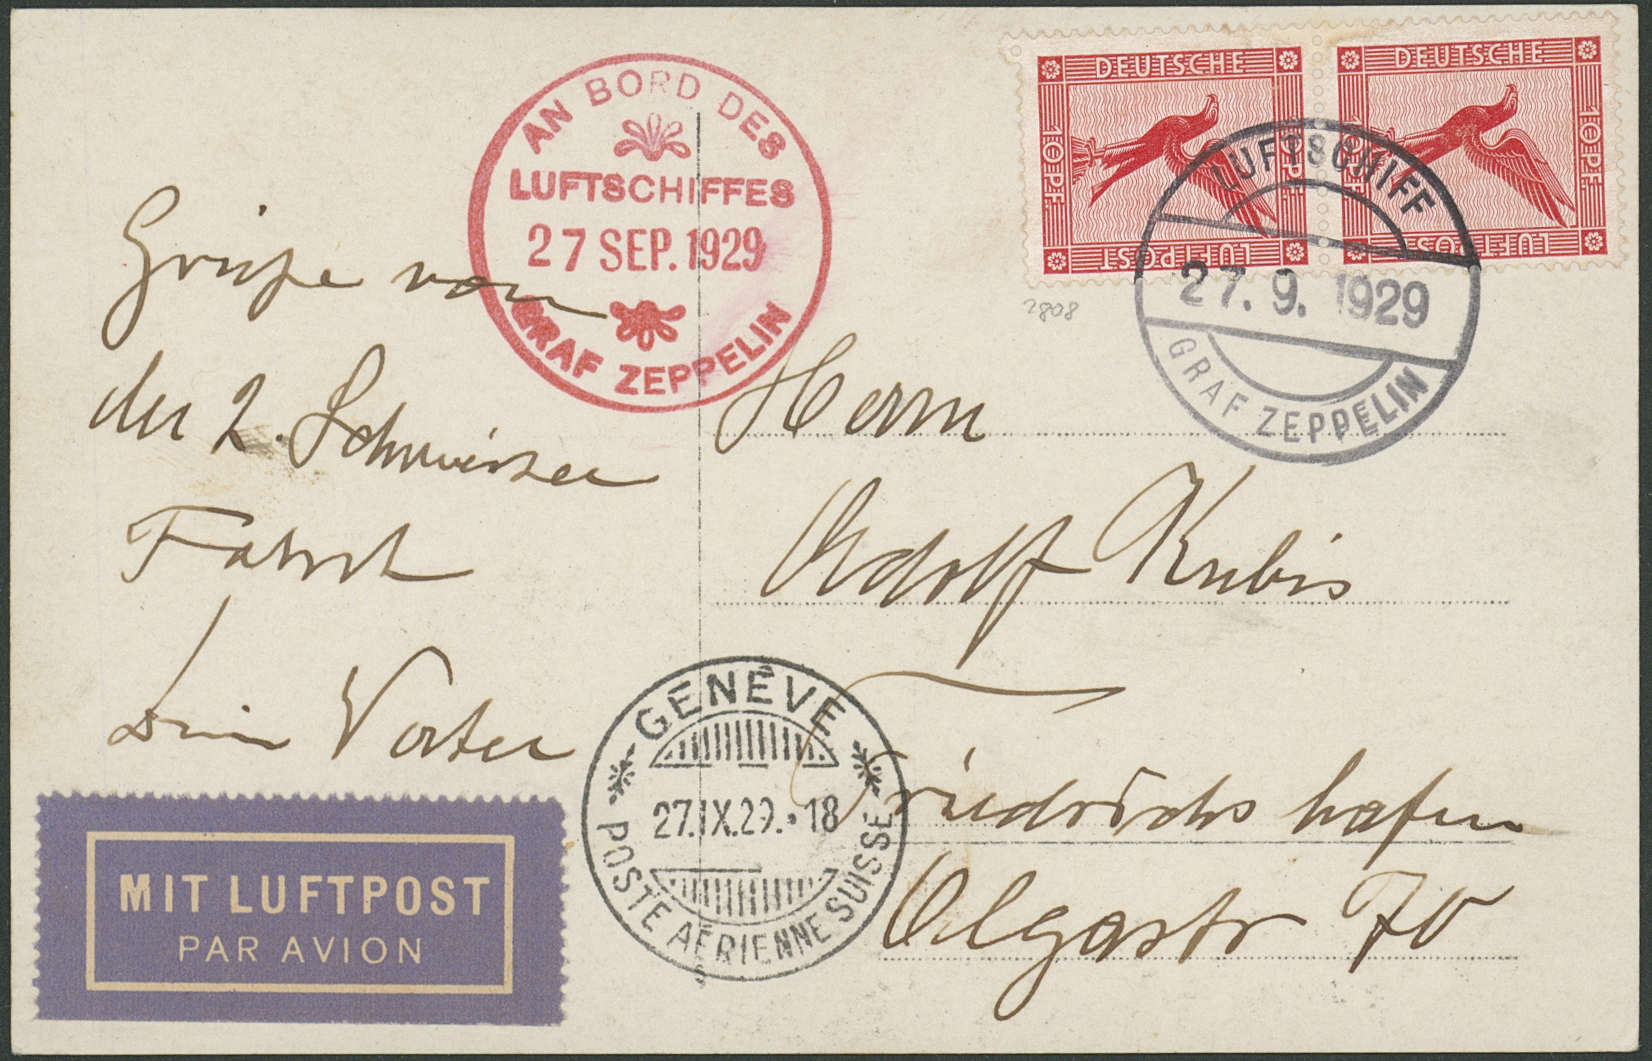 AN BORD DES
LUFTSCHIFFES
27 SEP. 1929
GRAF ZEPPELIN
DEUTSCHE
10 PF.
10 PF.
LUFTPOST
DEUTSCHE
10 PF.
10 PF.
LUFTPOST
LUFTSCHIFF
27. 9. 1929
GRAF ZEPPELIN
2808
Grüße von
der 2. Schweizer
Fahrt
Dein Vater
Herrn
Adolf Kubis
Friedrichshafen
Olgastr 70
GENÈVE
27.IX.29.·18
POSTE AÉRIENNE SUISSE
MIT LUFTPOST
PAR AVION